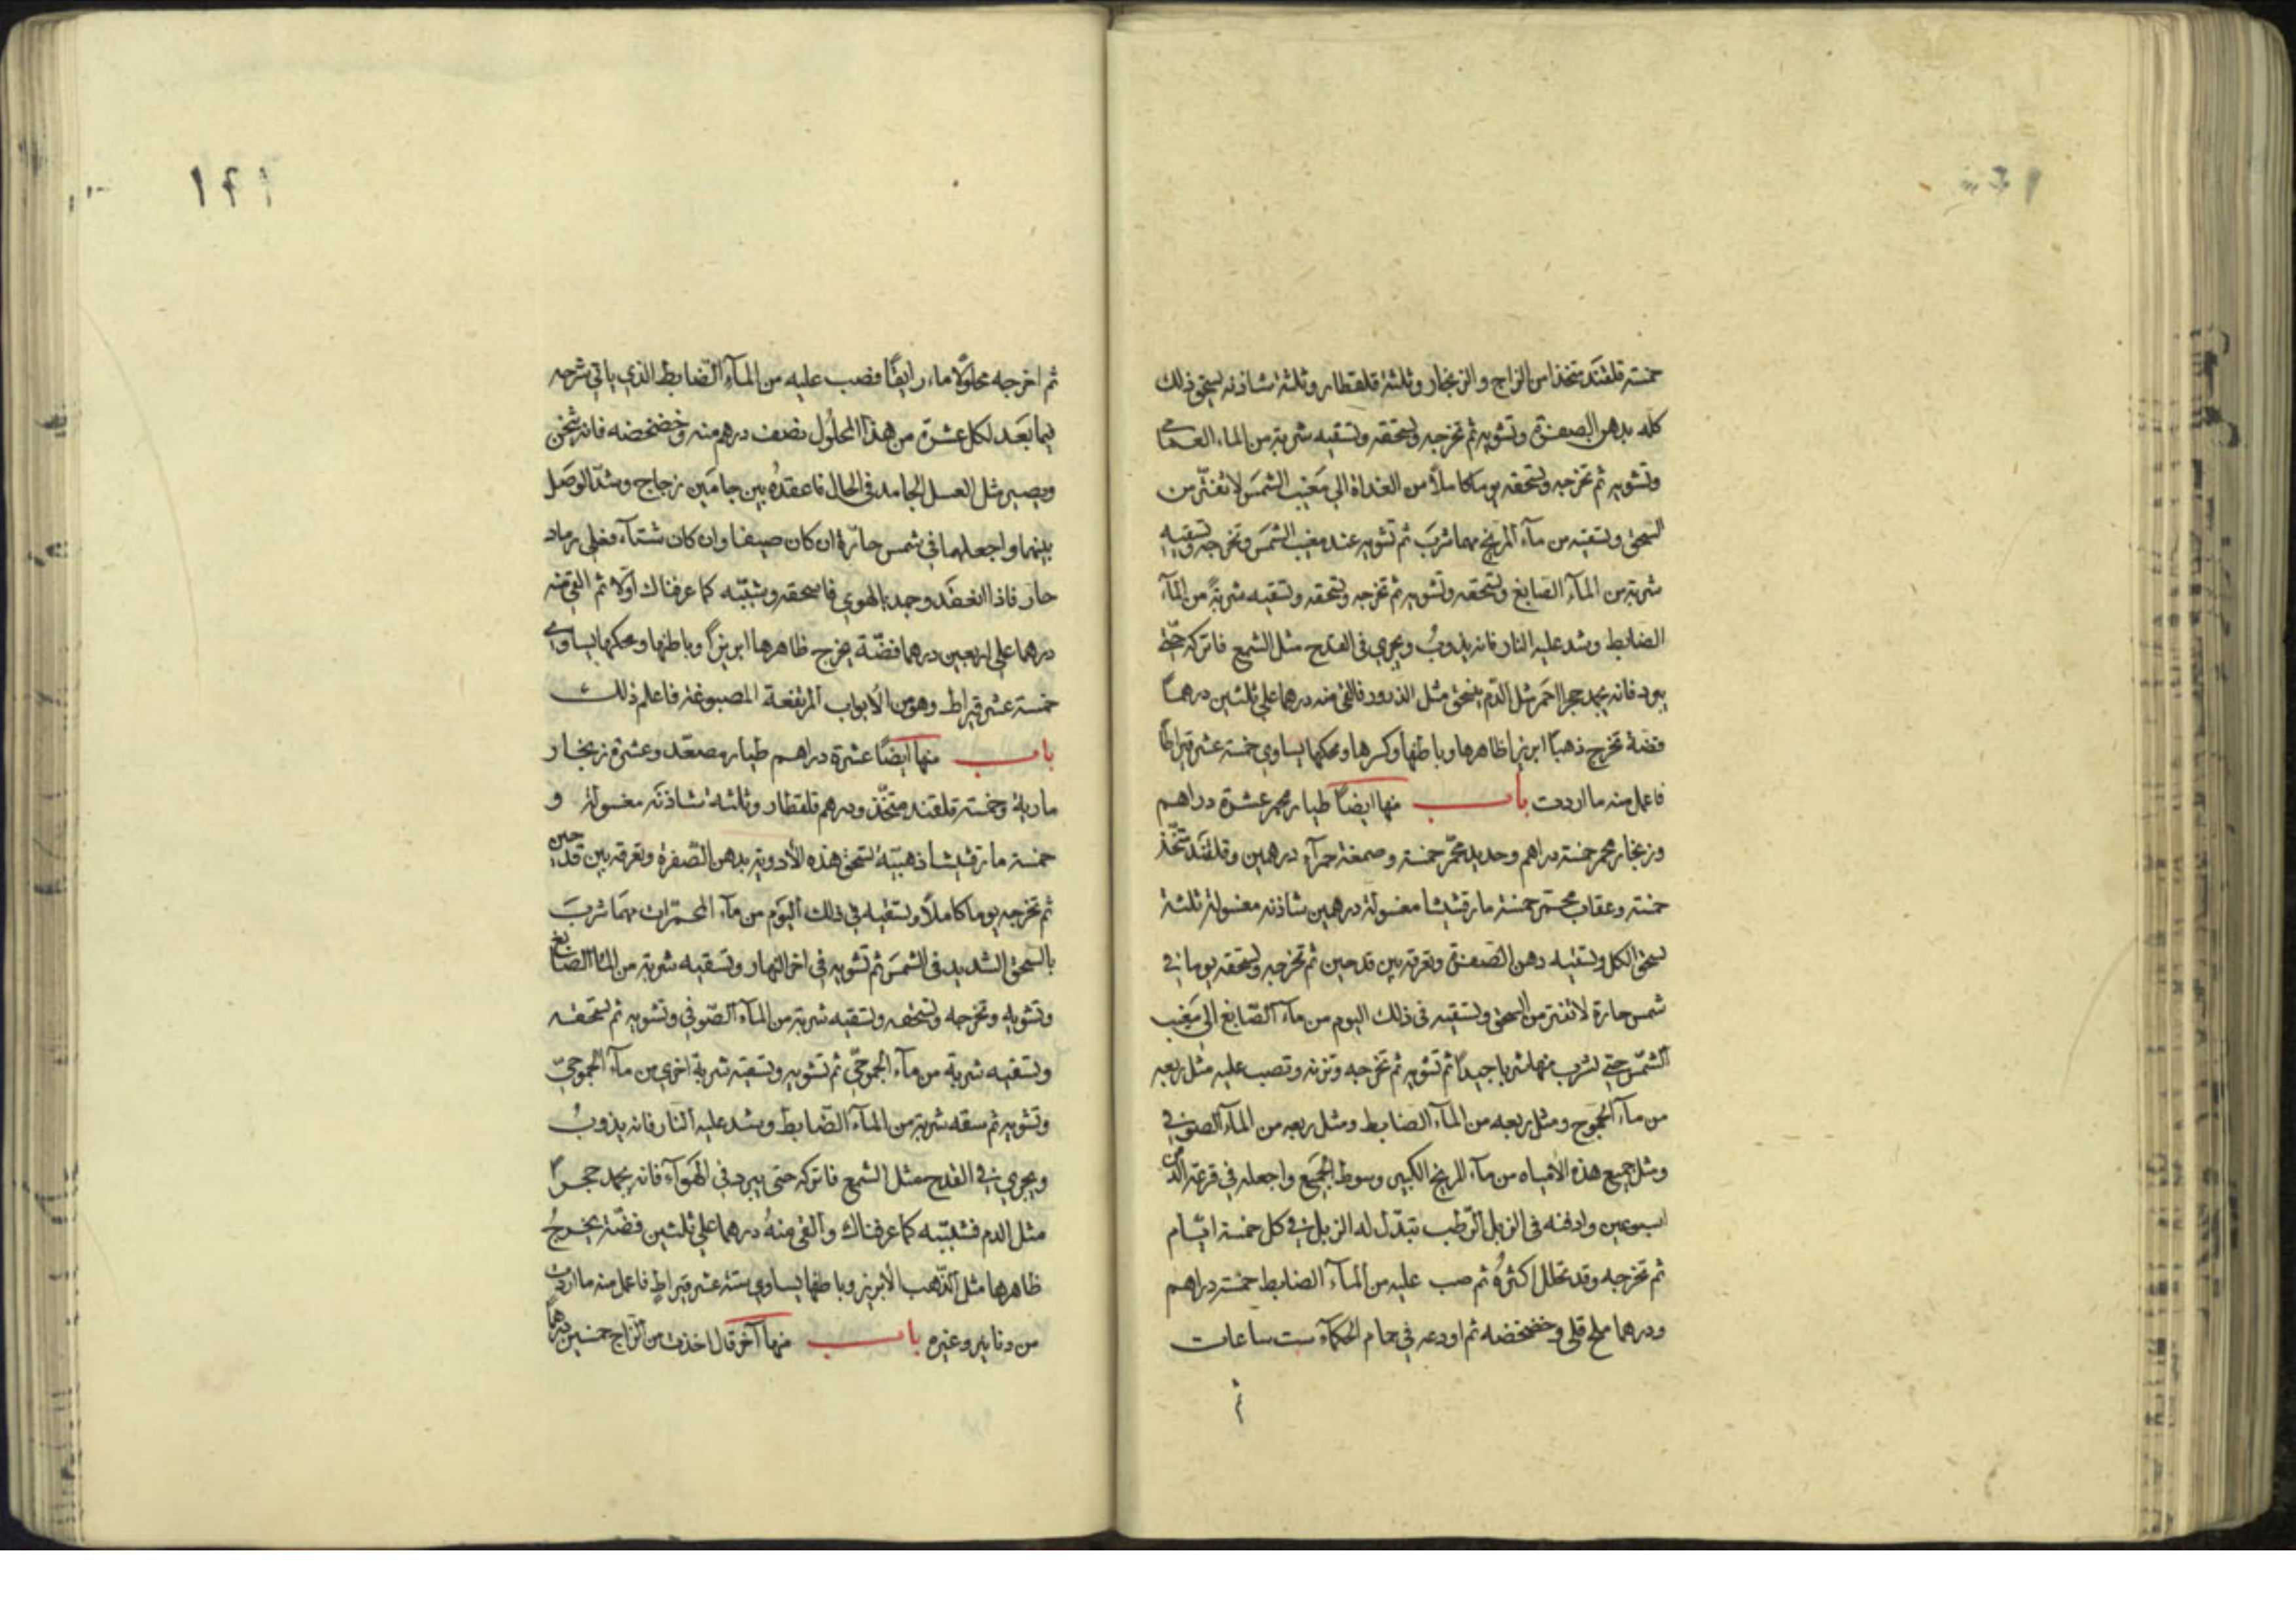 خمسة قلقند متخذ من الزاج والزنجار وثلثة قلقطار وثلثة شاذنه يسحق ذلك
كله بدهن الصفرة وتشويه ثم تخرجه وتسحقه وتسقيه شربة من الماء
وتشويه ثم تخرجه وتسحقه يوما كاملاً من الغداة الي مغيب الشمس لا تفتر من
السحق وتسقيه من مآء المريخ مهما شرب ثم تشويه عند مغيب الشمس وتخرجه وتسقيه
شربة من المآء الصابغ وتسحقه وتشويه ثم تخرجه وتسحقه وتسقيه شربة من المآء
الضابط وشد عليه النار فانه يذوبُ ويجري في القدح مثل الشمع فاتركه حتي
يبرد فانه يجمد حجرا احمر مثل الدم ينسحق مثل الذرور فالق منه درهما علي ثلثين درهماً
فضة تخرج ذهباً ابريزا ظاهرها وباطنها وكسرها ومحكها يساوي خمسة عشر قيراطا
فاعمل منه ما اردت باب منها ايضاً طيار محمر عشرة دراهم
وزنجار محمر خمسة دراهم وحديد محمّر خمسة وصمغة حمرآء درهمين وقلقند متخذ
خمسة وعقاب محمّر خمسة مارقشيشا مغسولة درهمين شاذنه مغسولة ثلثة
تسحق الكل وتسقيه دهن الصفرة وتغرقه بين قدحين ثم تخرجه وتسحقه يوما في
شمس حارة لا تفتر من السحق وتسقيه في ذلك اليوم من مآء الصّابغ الي مَغيب
الشمّس حتي تشرب منها شربا جيداً ثم تشويه ثم تخرجه وتزنه وتصب عليه مثل ربعه
من مآء الجموح ومثل ربعه من المآء الضابط ومثل ربعه من المآء الصوفي
ومثل جميع هذه الامياه من مآء المريخ الكبير وسوط الجميع واجعله في قرعة الدفن
اسبوعين وادفنه في الزبل الرّطب تبدّل له الزبل في كل خمسة ايّام
ثم تخرجه وقد تحلل اكثرهُ ثم صب عليه من المآء الضابط خمسة دراهم
ودرهما ملح قلي وخضخضه ثم اودعه في حمام الحكمآء ست ساعات
ثم
١٢١
ثم اخرجه محلولاً ماء رايقاً فصب عليه من المآء الضابط الذي ياتي شرحه
فيما بعَد لكل عشرة من هذا المحلُول نصف درهم منه وخضخضه فانه يثخن
ويصير مثل العسل الجامد في الحال فاعقدهُ بين جامَين زجاج وشدّ الوصَل
بينهما واجعلهما في شمس حارّة ان كان صيفا وان كان شتآء فعلي رماد
حار فاذا انعقد وجمد بالهوي فاسحقه وشبّبه كما عرفناك اوّلا ثم القي منه
درهما علي اربعين درهما فضّة يخرج ظاهرها ابريزاً وباطنها ومحكها يساوي
خمسة عشر قيراط وهو من الأبواب المرتفعة المصبوغة فاعلم ذلك
باب منها ايضاً عشرة دراهم طيار مصعّد وعشرة زنجار
مارية وخمسة قلقند متخّذ ودرهم قلقطار وثلثة شاذنه مغسولة و
خمسة مارقشيشا ذهبيّة تسحق هذه الأدوية بدهن الصّفرة وتغرقه بين قدحين
ثم تخرجه يوما كاملاً وتسقيه في ذلك اليَوم من مآء المحمّرات مهَما شربَ
بالسحق الشديد في الشمسَ ثم تشويه في اخر النهار وتسقيه شربة من المآ الصابغ
وتشويه وتخرجه وتسحقه وتسقيه شربة من المآء الصّوفي وتشويه ثم تسحقه
وتسقيه شربة من مآء الجموحيّ ثم تشويه وتسقيه شربة اخري من مآء الجموحيّ
وتشويه ثم سقه شربة من المآء الضّابط وشد عليه النار فانه يذوبُ
ويجري في القدح مثل الشمع فاتركه حتي يبرد في الهَوآء فانه يجمد حجراً
مثل الدم فشبّبه كما عرفناك والقي منهُ درهما علي ثلثين فضّة يخرجُ
ظاهرها مثل الذّهب الأبريز وباطنها يساوي ستة عشر قيراطٍ فاعمل منه ما اردت
من دنانير وغيره باب منها آخر قال اخذت من الزاج خمسين درهماً